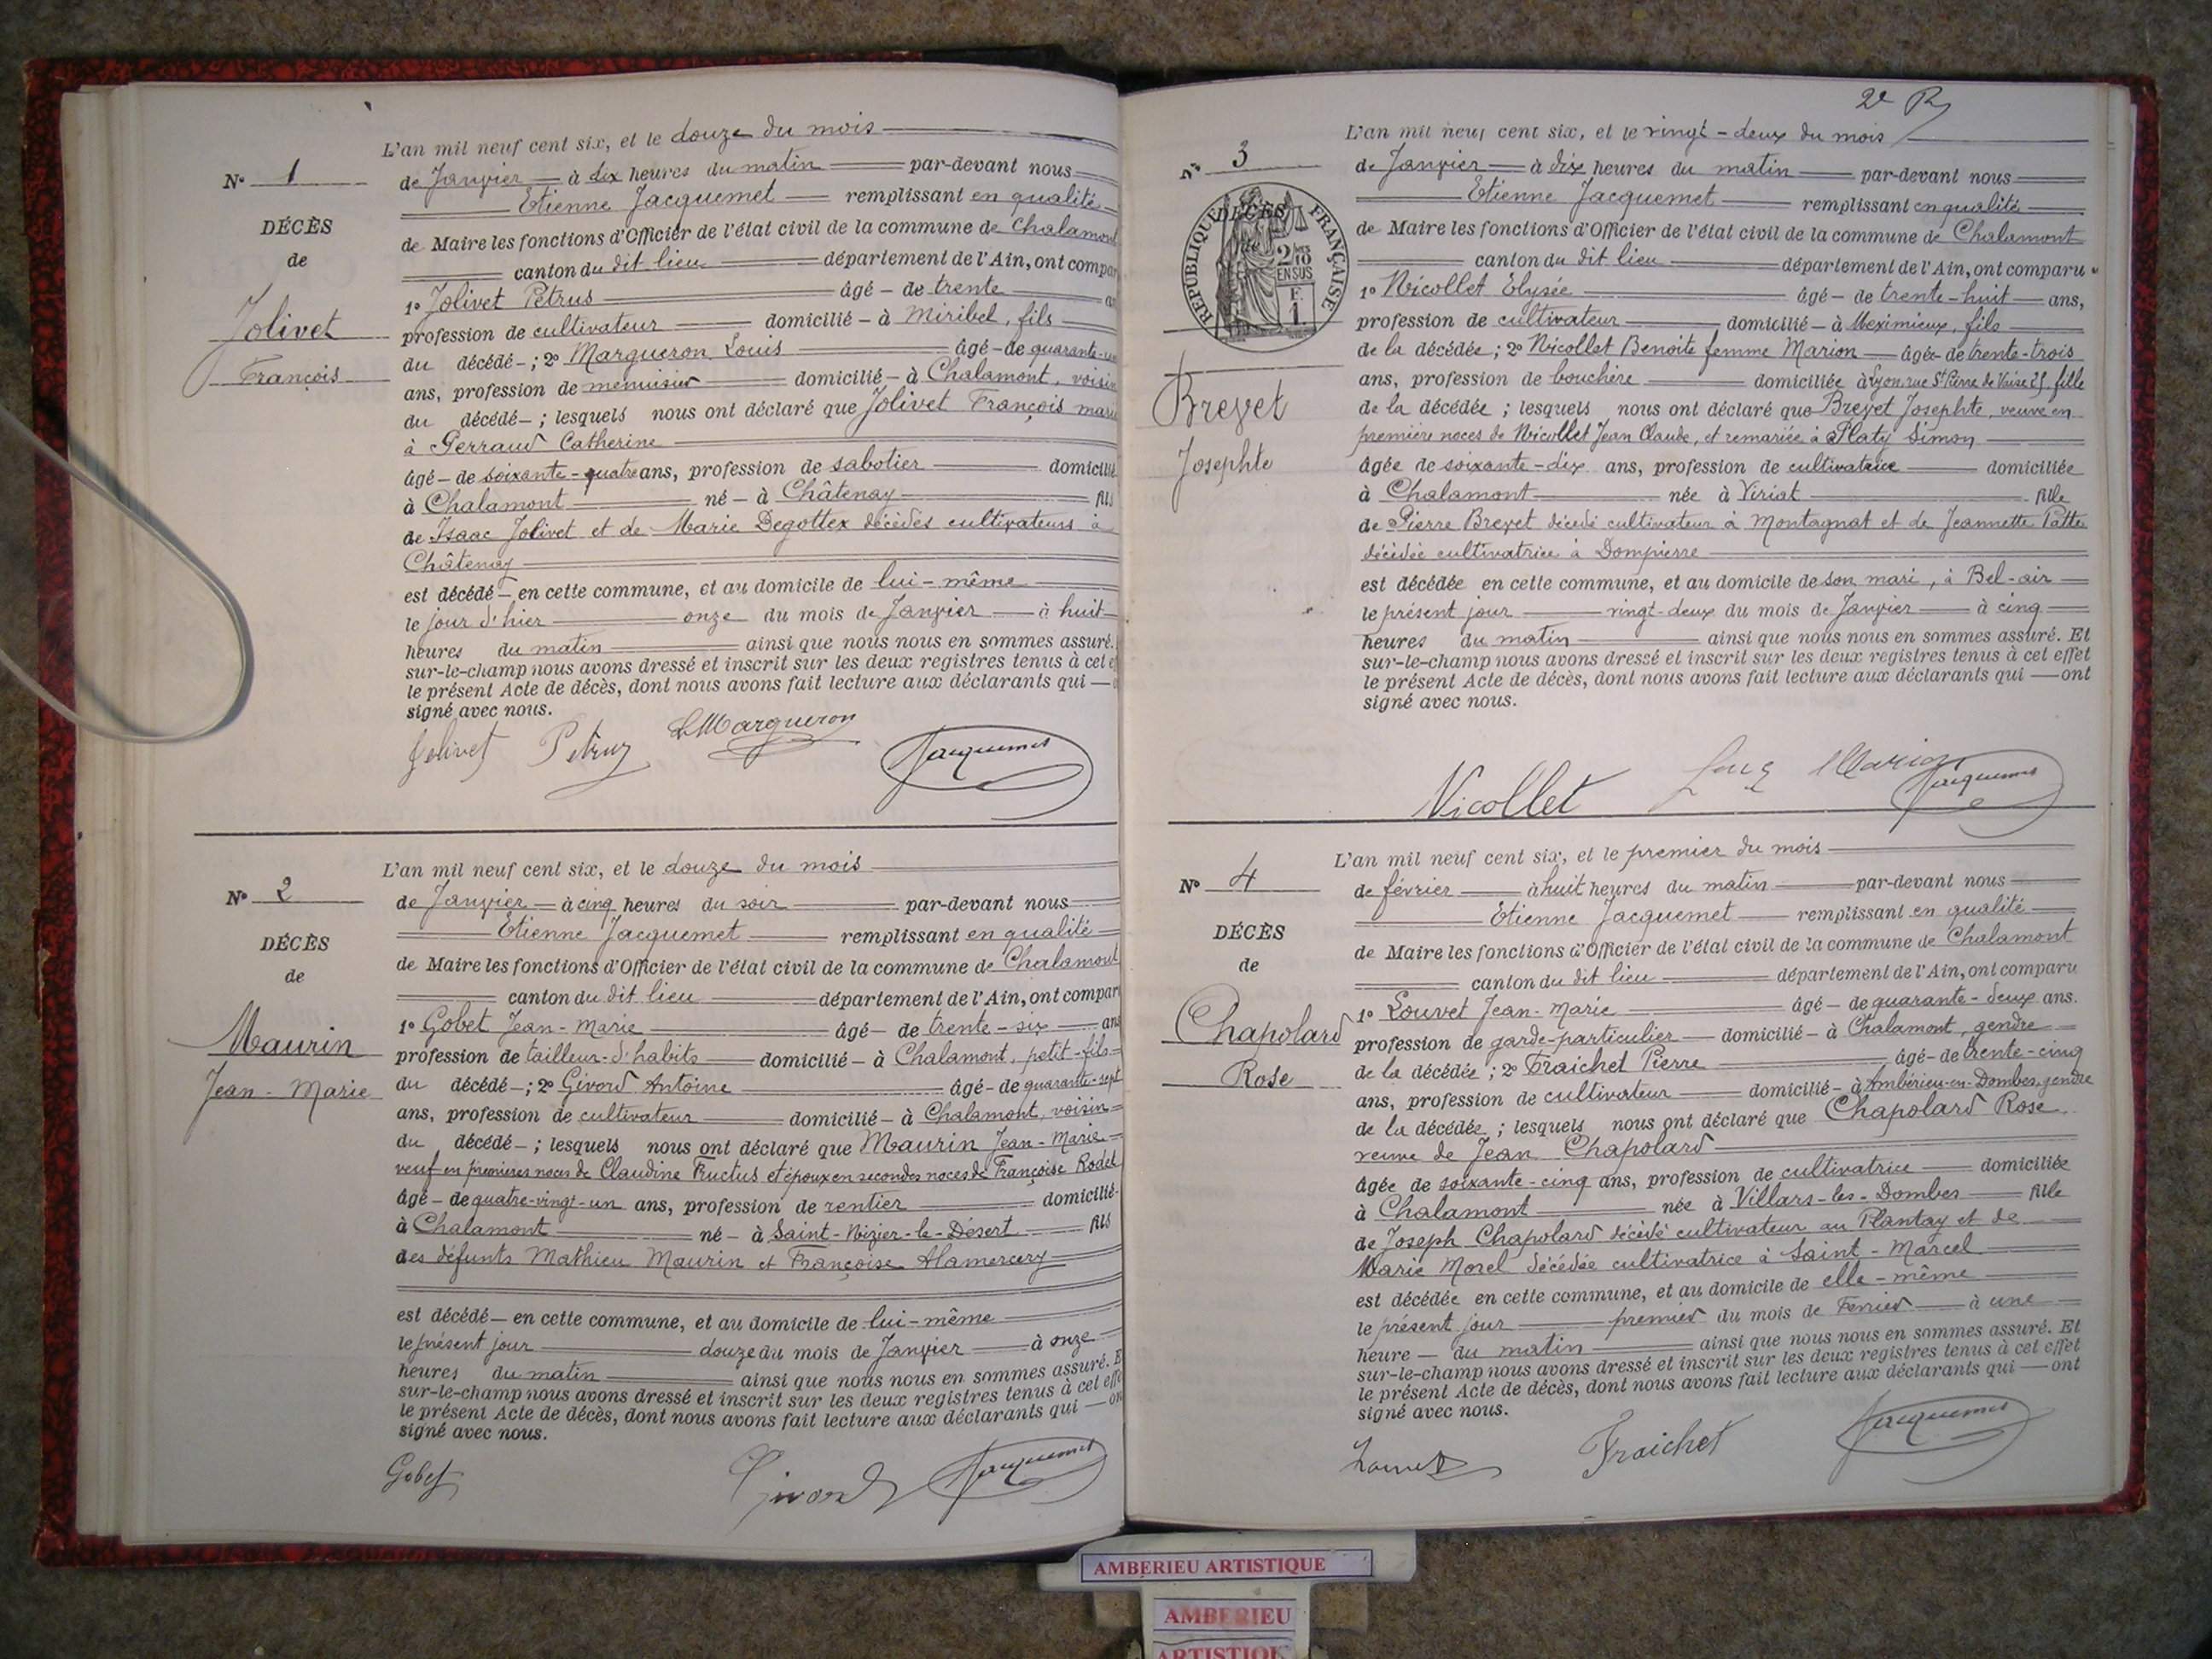 L'an mil neuf cent six, et le douze du mois
N° 1
de Janvier à dix heures du matin par-devant nous
Etienne Jacquemet remplissant en qualité
DÉCÈS
de Maire les fonctions d'Officier de l'état civil de la commune de Chalamont
de
canton du dit lieu département de l'Ain, ont compar
1° Jolivet Pétrus âgé de trente
Jolivet
profession de cultivateur domicilié à Miribel, fils
François
du décédé ; 2° Margueron Louis âgé de quarante-un
ans, profession de menuisier domicilié à Chalamont, voisin
du décédé ; lesquels nous ont déclaré que Jolivet François mari
à Perraud Catherine
âgé de soixante-quatre ans, profession de sabotier domicilié
à Chalamont né à Châtenay fils
de Isaac Jolivet et de Marie Degottex décédés cultivateurs à
Châtenay
est décédé en cette commune, et au domicile de lui-même
le jour d'hier onze du mois de Janvier à huit
heures du matin ainsi que nous nous en sommes assuré.
sur-le-champ nous avons dressé et inscrit sur les deux registres tenus à cet e
le présent Acte de décès, dont nous avons fait lecture aux déclarants qui
signé avec nous.
Jolivet Petrus LMargueron Jacquemet
L'an mil neuf cent six, et le douze du mois
N° 2
de Janvier à cinq heures du soir par-devant nous
Etienne Jacquemet remplissant en qualité
DÉCÈS
de Maire les fonctions d'Officier de l'état civil de la commune de Chalamont
de
canton du dit lieu département de l'Ain, ont compar
1° Gobet Jean-Marie âgé de trente-six ans
Maurin
profession de tailleur-d'habits domicilié à Chalamont, petit-fils
Jean-Marie
du décédé ; 2° Givord Antoine âgé de quarante-sept
ans, profession de cultivateur domicilié à Chalamont, voisin
du décédé ; lesquels nous ont déclaré que Maurin Jean-Marie
veuf en premières noces de Claudine Fructus et époux en secondes noces de Françoise Rodet
âgé de quatre-vingt-un ans, profession de rentier domicilié
à Chalamont né à Saint-Nizier-le-Désert fils
des défunts Mathieu Maurin et Françoise Alamercery
est décédé en cette commune, et au domicile de lui-même
le présent jour douze du mois de Janvier à onze
heures du matin ainsi que nous nous en sommes assuré. E
sur-le-champ nous avons dressé et inscrit sur les deux registres tenus à cet effe
le présent Acte de décès, dont nous avons fait lecture aux déclarants qui on
signé avec nous.
Gobet Givord Jacquemet
2e R
L'an mil neuf cent six, et le vingt-deux du mois
N° 3
de Janvier à dix heures du matin par-devant nous
Etienne Jacquemet remplissant en qualité
DÉCÈS
RÉPUBLIQUE FRANÇAISE
2/10 EN SUS
F. 1
de Maire les fonctions d'Officier de l'état civil de la commune de Chalamont
canton du dit lieu département de l'Ain, ont comparu
1° Nicollet Elysée âgé de trente-huit ans,
profession de cultivateur domicilié à Meximieux, fils
de la décédée ; 2° Nicollet Benoite femme Marion âgée de trente-trois
Brevet
ans, profession de bouchère domiciliée à Lyon, rue St Pierre de Vaise 25, fille
de la décédée ; lesquels nous ont déclaré que Brevet Josephte, veuve en
première noces de Nicollet Jean Claude, et remariée à Platy Simon
Josephte
âgée de soixante-dix ans, profession de cultivatrice domiciliée
à Chalamont née à Viriat fille
de Pierre Brevet décédé cultivateur à Montagnat et de Jeannette Patte
décédée cultivatrice à Dompierre
est décédée en cette commune, et au domicile de son mari, à Bel-air
le présent jour vingt-deux du mois de Janvier à cinq
heures du matin ainsi que nous nous en sommes assuré. Et
sur-le-champ nous avons dressé et inscrit sur les deux registres tenus à cet effet
le présent Acte de décès, dont nous avons fait lecture aux déclarants qui ont
signé avec nous.
Nicollet Marion Jacquemet
L'an mil neuf cent six, et le premier du mois
N° 4
de février à huit heures du matin par-devant nous
Etienne Jacquemet remplissant en qualité
DÉCÈS
de Maire les fonctions d'Officier de l'état civil de la commune de Chalamont
de
canton du dit lieu département de l'Ain, ont comparu
1° Louvet Jean-Marie âgé de quarante-deux ans.
Chapolard
profession de garde-particulier domicilié à Chalamont, gendre
Rose
de la décédée ; 2° Fraichet Pierre âgé de trente-cinq
ans, profession de cultivateur domicilié à Ambérieu-en-Dombes, gendre
de la décédée ; lesquels nous ont déclaré que Chapolard Rose
veuve de Jean Chapolard
âgée de soixante-cinq ans, profession de cultivatrice domiciliée
à Chalamont née à Villars-les-Dombes fille
de Joseph Chapolard décédé cultivateur au Plantay et de
Marie Morel décédée cultivatrice à Saint-Marcel
est décédée en cette commune, et au domicile de elle-même
le présent jour premier du mois de Février à une
heure du matin ainsi que nous nous en sommes assuré. Et
sur-le-champ nous avons dressé et inscrit sur les deux registres tenus à cet effet
le présent Acte de décès, dont nous avons fait lecture aux déclarants qui ont
signé avec nous.
Louvet Fraichet Jacquemet
AMBERIEU ARTISTIQUE
AMBERIEU
ARTISTIQUE